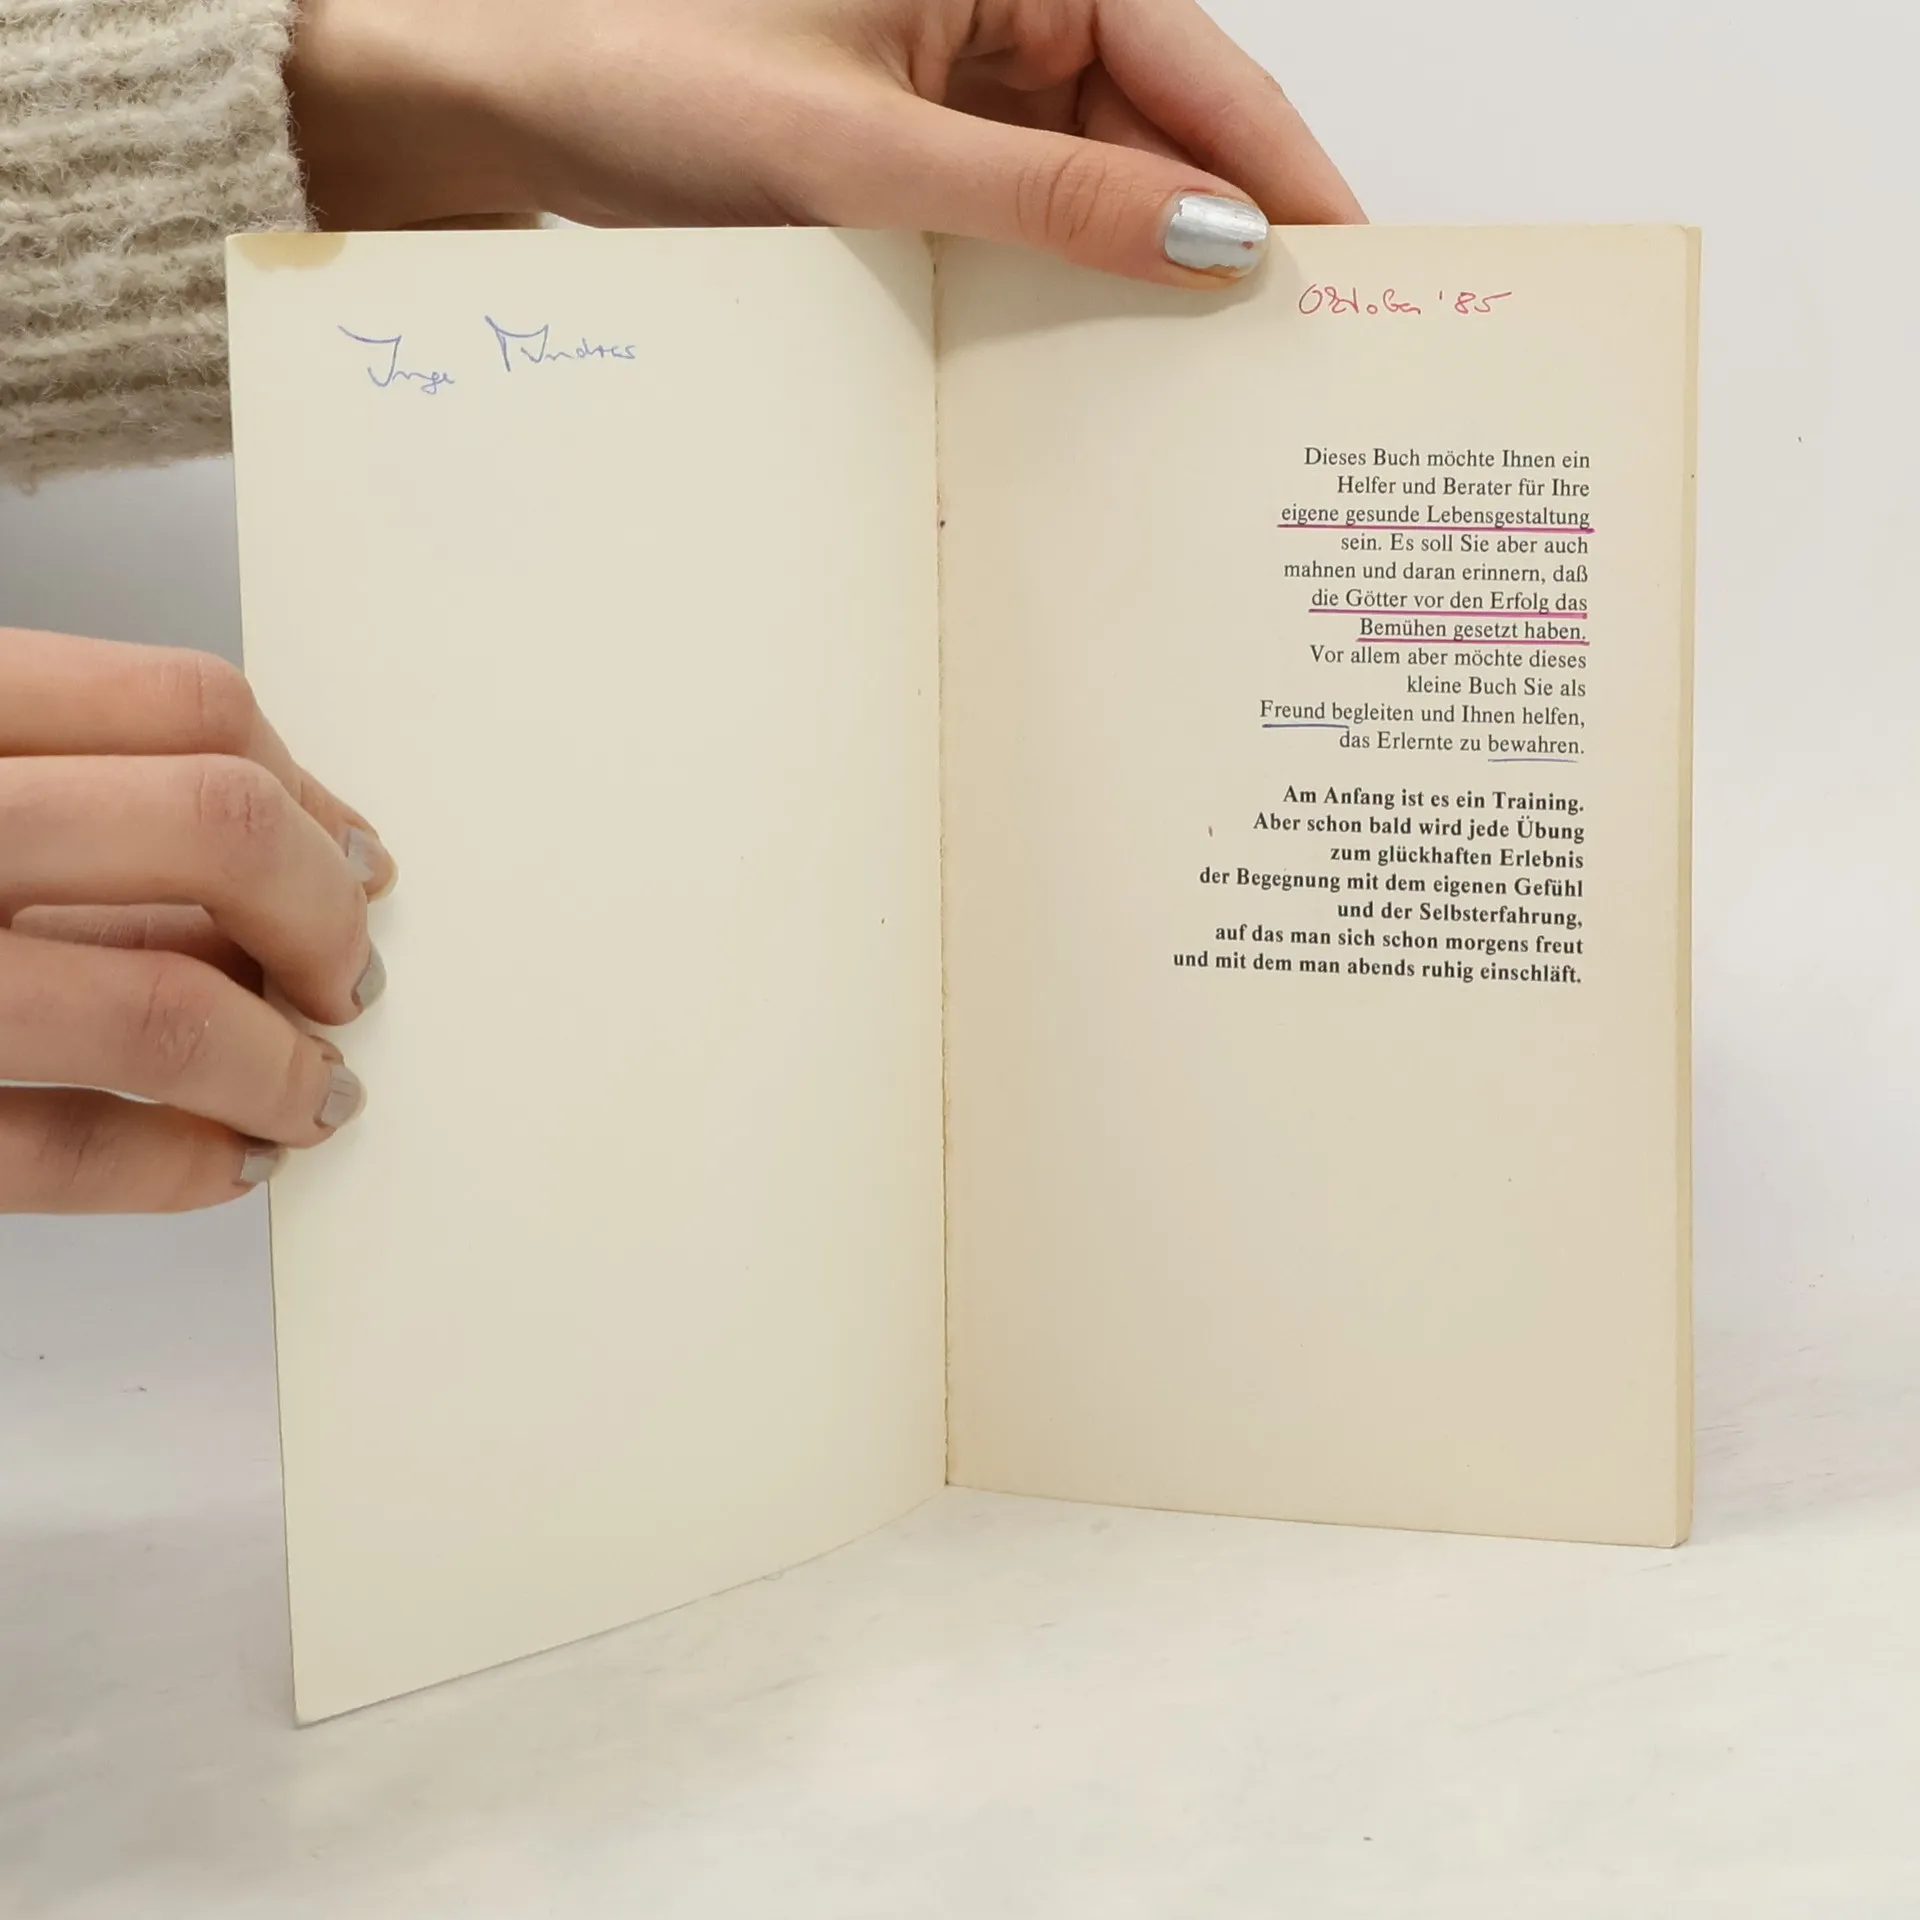 Inge
Oktober '85
Dieses Buch möchte Ihnen ein
Helfer und Berater für Ihre
eigene gesunde Lebensgestaltung
sein. Es soll Sie aber auch
mahnen und daran erinnern, daß
die Götter vor den Erfolg das
Bemühen gesetzt haben.
Vor allem aber möchte dieses
kleine Buch Sie als
Freund begleiten und Ihnen helfen,
das Erlernte zu bewahren.
Am Anfang ist es ein Training.
Aber schon bald wird jede Übung
zum glückhaften Erlebnis
der Begegnung mit dem eigenen Gefühl
und der Selbsterfahrung,
auf das man sich schon morgens freut
und mit dem man abends ruhig einschläft.